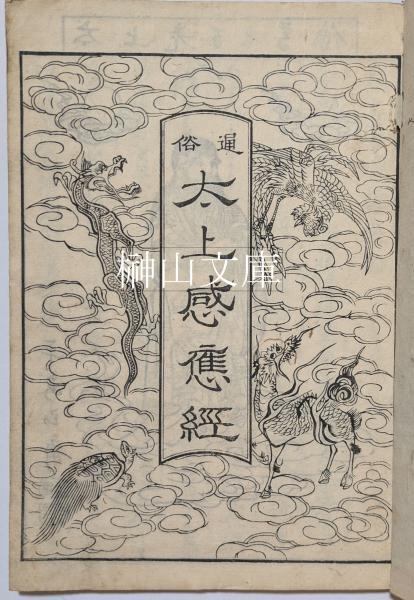 通俗
太上感應經
榊山文庫